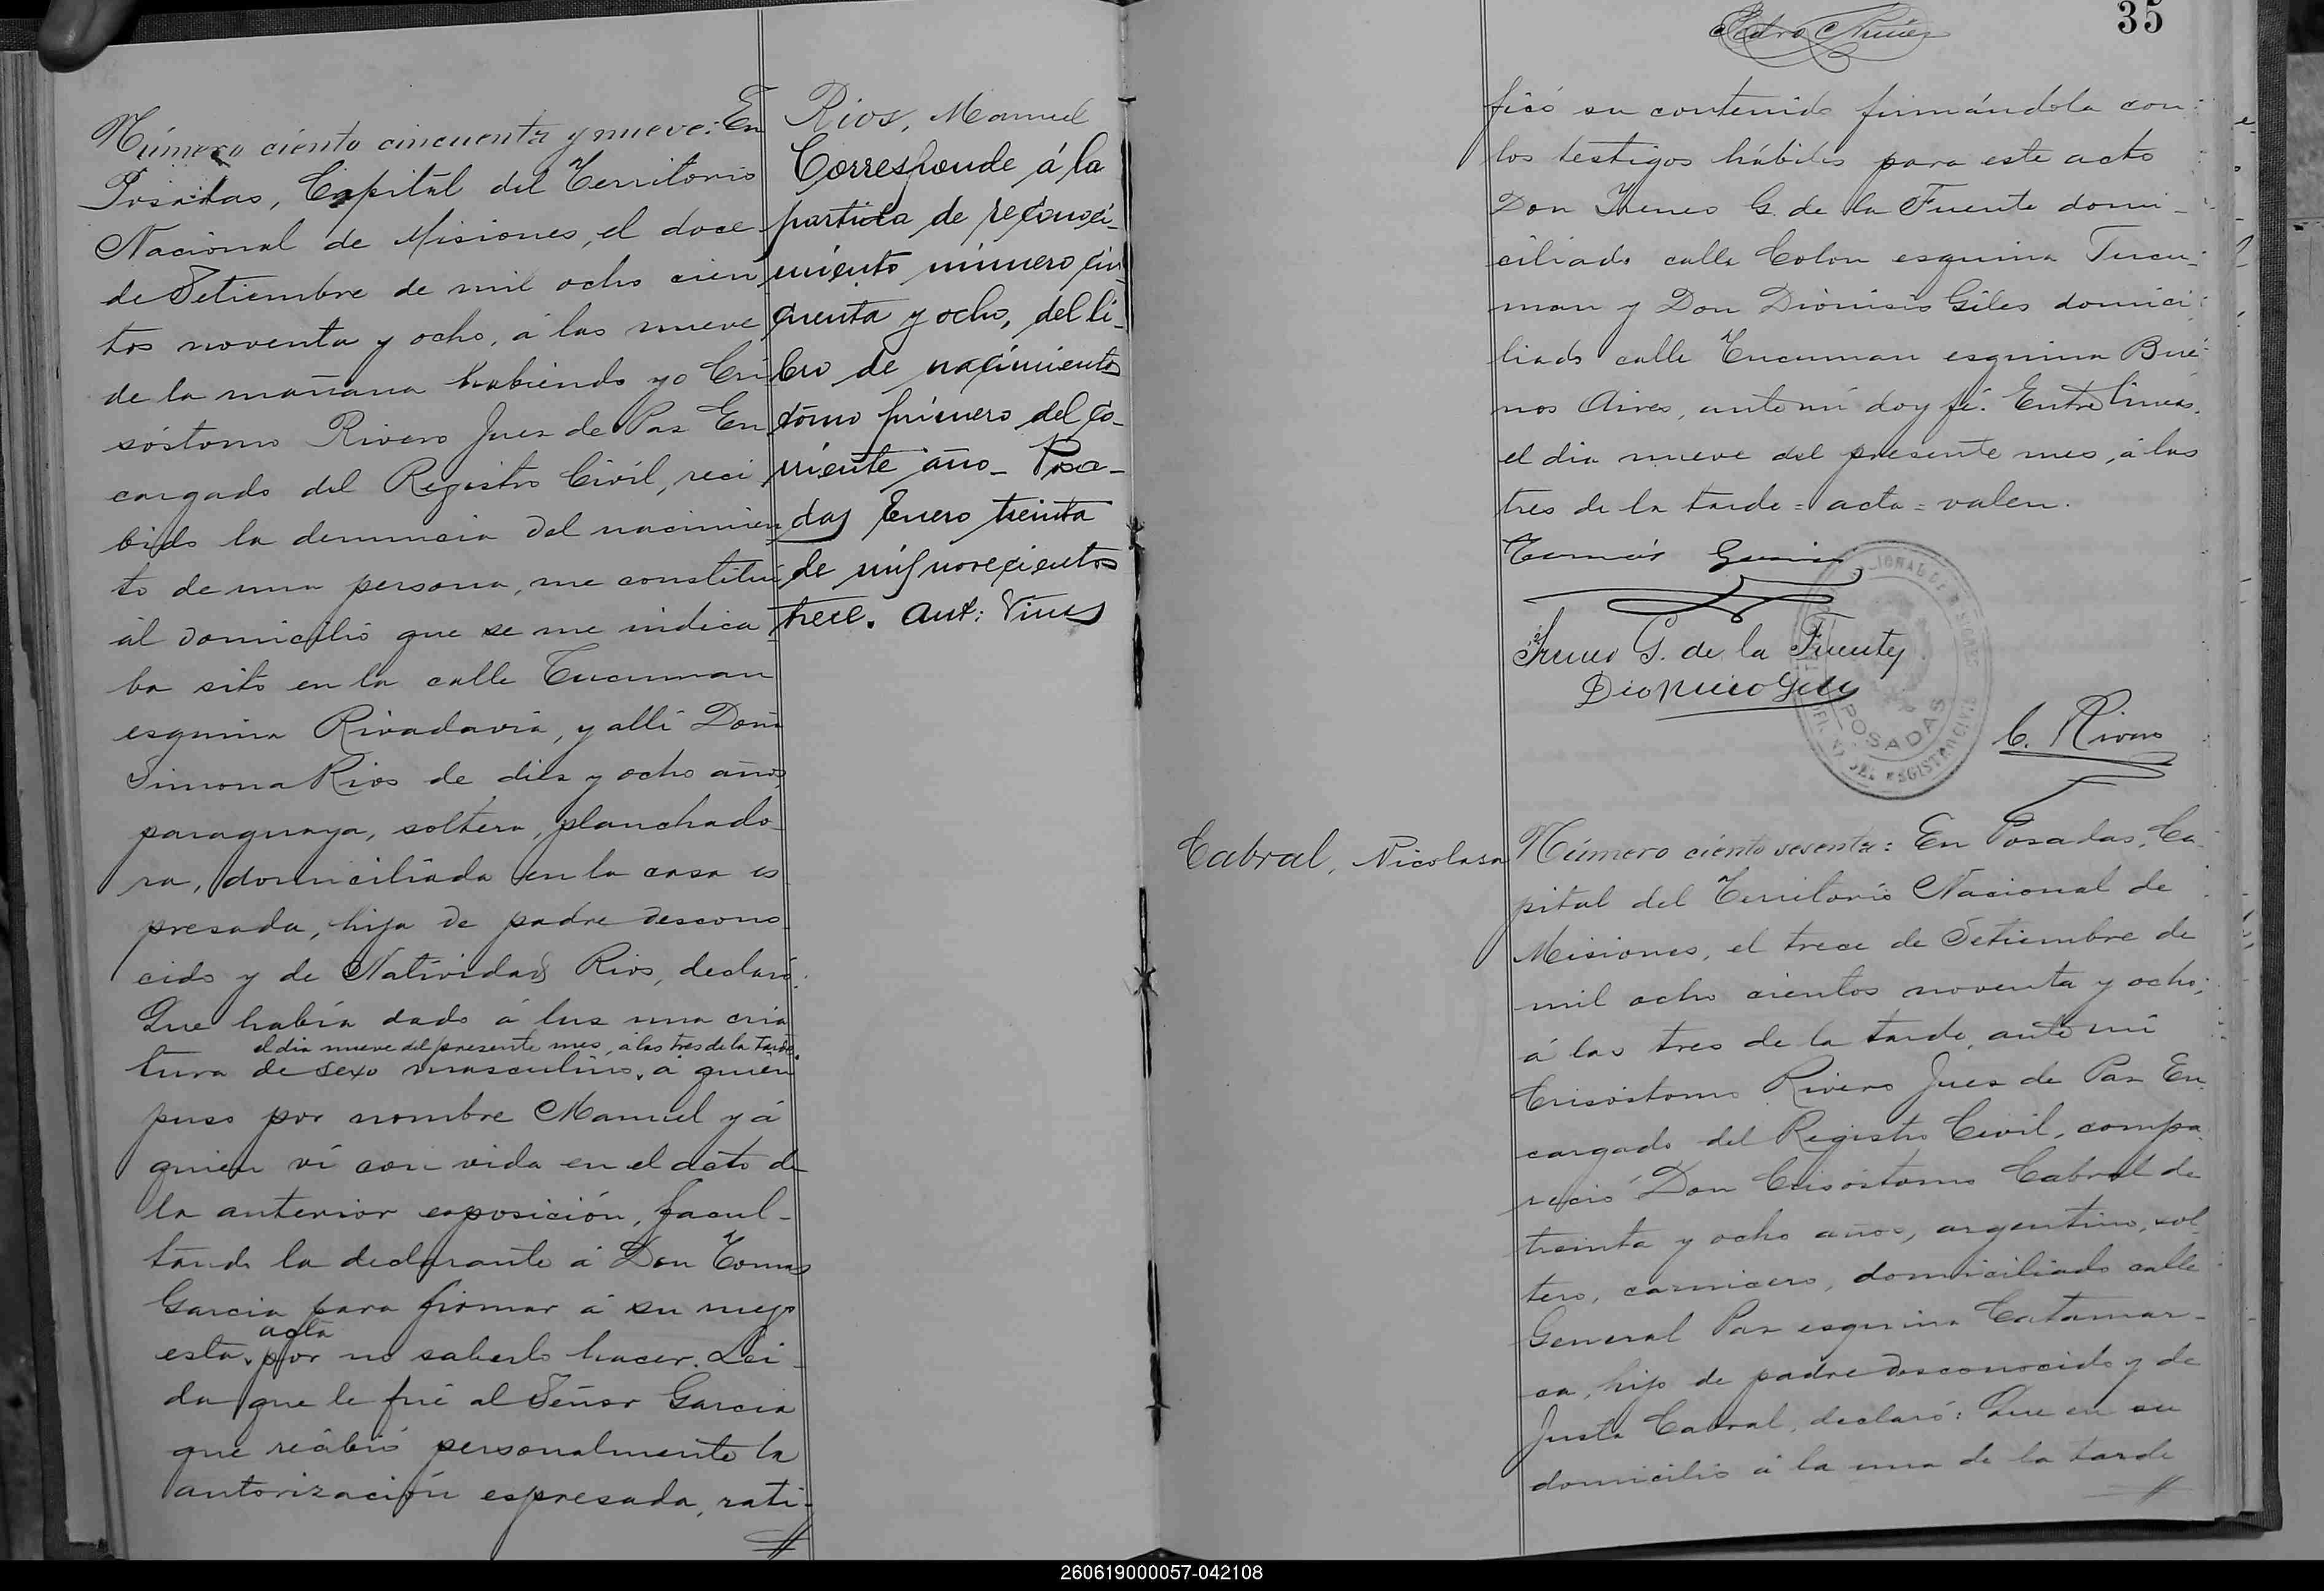 Número ciento cincuenta y nueve: En
Posadas, Capital del Territorio
Nacional de Misiones, el doce
de Setiembre de mil ocho cien
tos noventa y ocho, á las nueve
de la mañana habiendo yo Cri
sóstomo Rivero Juez de Paz En
cargado del Registro Civil, reci
bido la denuncia del nacimien
to de una persona, me constitui
al domicilio que se me indica
ba sito en la calle Tucuman
esquina Rivadavia, y alli Doña
Simona Rios de diez y ocho años,
paraguaya, soltera, planchado
ra, domiciliada en la casa es
presada, hija de padre descono
cido y de Natividad Rios, declaró:
Que habia dado á luz una cria
el dia nueve del presente mes, á las tres de la tarde
tura de sexo masculino, á quien
puso por nombre Manuel y á
quien vi con vida en el acto de
la anterior esposición, facul-
tando la declarante á Don Tomas
Garcia para firmar á su ruego
acta
esta por no saberlo hacer. Lei-
da que le fué al Señor Garcia
que recibió personalmente la
autorización espresada, rati-
Rios, Manuel
Corresponde á la
partida de reconoci-
miento número cin
cuenta y ocho, del li-
bro de nacimientos
tomo primero del co-
rriente año - Posa-
das Enero treinta
de mil novecientos
trece. Ant: Vives
35
Pedro Nuñez
ficó su contenido firmándola con
los testigos hábiles para este acto
Don Ireneo G. de la Fuente domi-
ciliado calle Colon esquina Tucu-
man y Don Dionisio Giles domici
liado calle Tucuman esquina Bue-
nos Aires, ante mi doy fé. Entre lineas,
el dia nueve del presente mes, á las
tres de la tarde = acta = valen.
Tomás Garcia
Ireneo G. de la Fuente
Dionicio Giles
POSADAS
C. Rivero
Cabral, Nicolasa
Número ciento sesenta: En Posadas, Ca-
pital del Territorio Nacional de
Misiones, el trece de Setiembre de
mil ocho cientos noventa y ocho,
á las tres de la tarde, ante mi
Crisóstomo Rivero Juez de Paz En
cargado del Registro Civil, compa
reció Don Crisóstomo Cabral de
treinta y ocho años, argentino, sol
tero, carnicero, domiciliado calle
General Paz esquina Catamar-
ca, hijo de padre desconocido y de
Justa Cabral, declaró: Que en su
domicilio á la una de la tarde
260619000057-042108